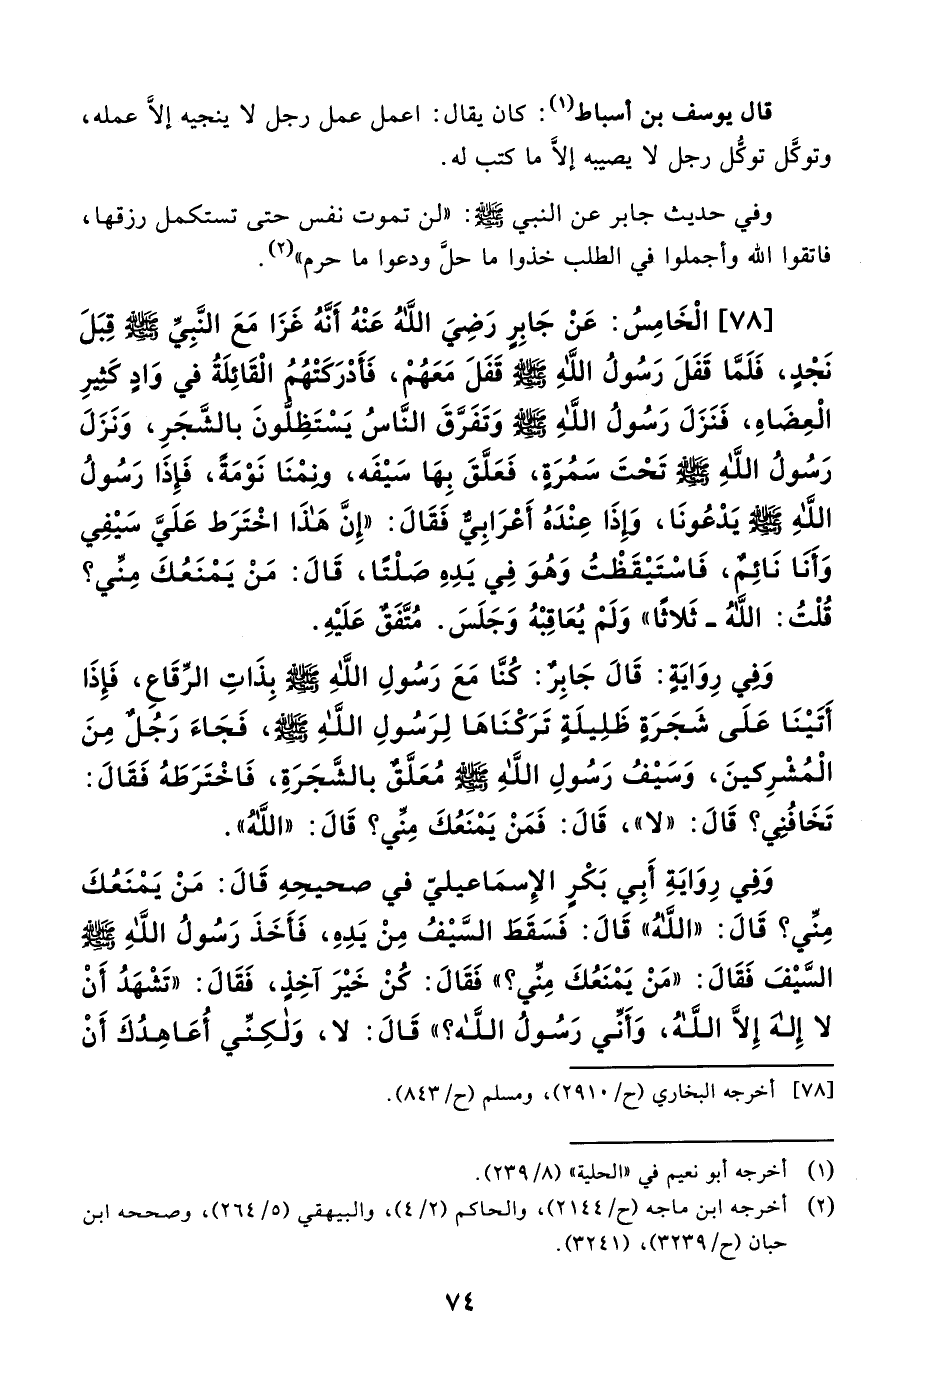 قال يوسف بن أسباط(١): كان يقال: اعمل عمل رجل لا ينجيه إلاَّ عمله،
وتوكَّل توكُّل رجل لا يصيبه إلاَّ ما كتب له.
وفي حديث جابر عن النبي ﷺ: «لن تموت نفس حتى تستكمل رزقها،
فاتقوا الله وأجملوا في الطلب خذوا ما حلَّ ودعوا ما حرم»(٢).
[٧٨] الْخَامِسُ: عَنْ جَابِرٍ رَضِيَ اللَّهُ عَنْهُ أَنَّهُ غَزَا مَعَ النَّبِيِّ ﷺ قِبَلَ
نَجْدٍ، فَلَمَّا قَفَلَ رَسُولُ اللَّهِ ﷺ قَفَلَ مَعَهُمْ، فَأَدْرَكَتْهُمُ الْقَائِلَةُ في وَادٍ كَثِيرِ
الْعِضَاهِ، فَنَزَلَ رَسُولُ اللَّهِ ﷺ وَتَفَرَّقَ النَّاسُ يَسْتَظِلُّونَ بالشَّجَرِ، وَنَزَلَ
رَسُولُ اللَّهِ ﷺ تَحْتَ سَمُرَةٍ، فَعَلَّقَ بِهَا سَيْفَه، ونِمْنَا نَوْمَةً، فَإِذَا رَسُولُ
اللَّهِ ﷺ يَدْعُونَا، وَإِذَا عِنْدَهُ أَعْرَابِيٌّ فَقَالَ: «إِنَّ هَٰذَا اخْتَرَط عَلَيَّ سَيْفِي
وَأَنَا نَائِمٌ، فَاسْتَيْقَظْتُ وَهُوَ فِي يَدِهِ صَلْتًا، قَالَ: مَنْ يَمْنَعُكَ مِنِّي؟
قُلْتُ: اللَّهُ ـ ثَلاثًا» وَلَمْ يُعَاقِبْهُ وَجَلَسَ. مُتَّفَقٌ عَلَيْهِ.
وَفِي رِوَايَةٍ: قَالَ جَابِرٌ: كُنَّا مَعَ رَسُولِ اللَّهِ ﷺ بِذَاتِ الرِّقَاعِ، فَإِذَا
أَتَيْنَا عَلَى شَجَرَةٍ ظَلِيلَةٍ تَرَكْنَاهَا لِرَسُولِ اللَّهِ ﷺ، فَجَاءَ رَجُلٌ مِنَ
الْمُشْرِكينَ، وَسَيْفُ رَسُولِ اللَّهِ ﷺ مُعَلَّقٌ بالشَّجَرَةِ، فَاخْتَرَطَهُ فَقَالَ:
تَخَافُنِي؟ قَالَ: «لا»، قَالَ: فَمَنْ يَمْنَعُكَ مِنِّي؟ قَالَ: «اللَّهُ».
وَفِي رِوَايَةِ أَبِي بَكْرٍ الإِسمَاعيليّ في صحيحِهِ قَالَ: مَنْ يَمْنَعُكَ
مِنِّي؟ قَالَ: «اللَّهُ» قَالَ: فَسَقَطَ السَّيْفُ مِنْ يَدِهِ، فَأَخَذَ رَسُولُ اللَّهِ ﷺ
السَّيْفَ فَقَالَ: «مَنْ يَمْنَعُكَ مِنِّي؟» فَقَالَ: كُنْ خَيْرَ آخِذٍ، فَقَالَ: «تَشْهَدُ أَنْ
لا إِلهَ إِلاَّ اللَّهُ، وَأَنِّي رَسُولُ اللَّه؟» قَالَ: لا، وَلٰكِنِّي أُعَاهِدُكَ أَنْ
[٧٨] أخرجه البخاري (ح/٢٩١٠)، ومسلم (ح/٨٤٣).
(١) أخرجه أبو نعيم في «الحلية» (٨/٢٣٩).
(٢) أخرجه ابن ماجه (ح/٢١٤٤)، والحاكم (٢/٤)، والبيهقي (٥/٢٦٤)، وصححه ابن
حبان (ح/٣٢٣٩)، (٣٢٤١).
٧٤